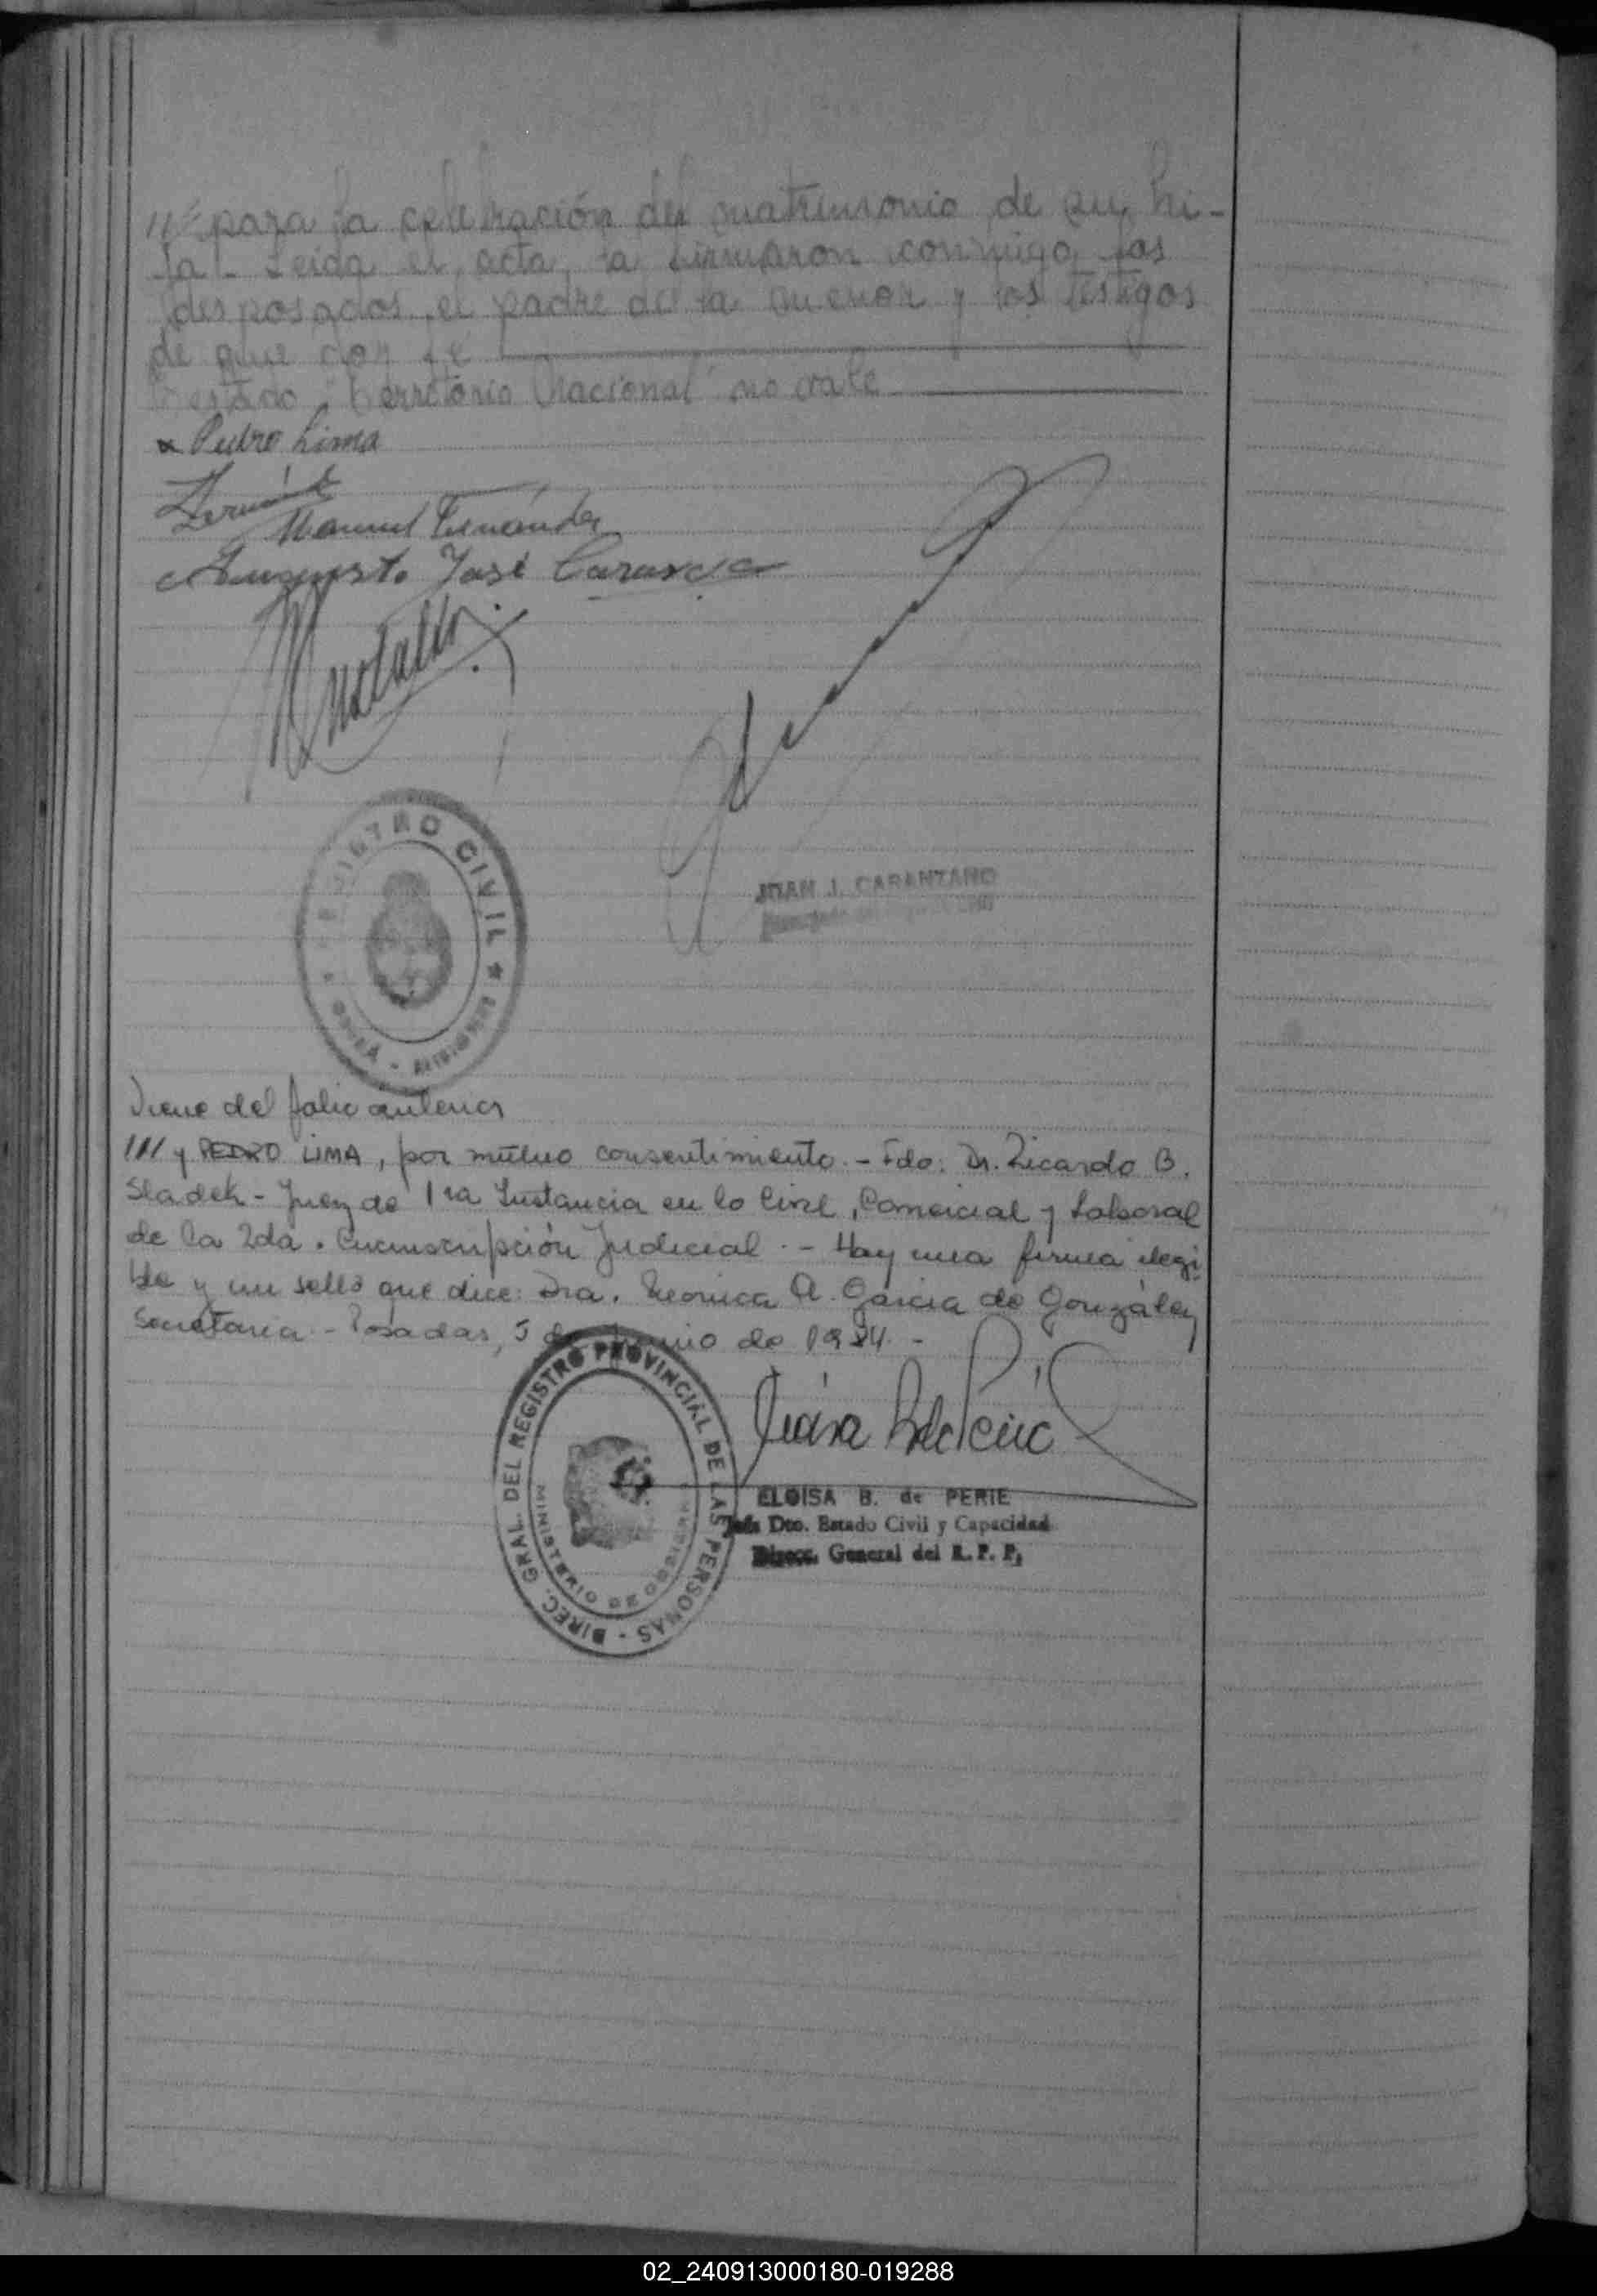 /// para la celebración del matrimonio de su hi-
ja - Leida el acta, la firmaron conmigo, los
desposados, el padre de la menor y los testigos
de que doy fé
Testado "Territorio Nacional" no vale
Pedro Lima
Manuel Fernández
Augusto José
REGISTRO CIVIL
MISIONES
JUAN J. CARANTANO
Viene del folio anterior
/// y PEDRO LIMA, por mútuo consentimiento. - Fdo: Dr. Ricardo B.
Sladek - Juez de 1ra Instancia en lo Civil, Comercial y Laboral
de la 2da. Circunscripción Judicial. - Hay una firma ilegi-
ble y un sello que dice: Dra. Monica A. Garcia de González
Secretaria - Posadas, 5 de Junio de 1984. -
DIREC. GRAL. DEL REGISTRO PROVINCIAL DE LAS PERSONAS -
MINISTERIO DE GOBIERNO
ELOISA B. de PERIE
Jefe Dto. Estado Civil y Capacidad
Direcc. General del R. P. P.
02_240913000180-019288